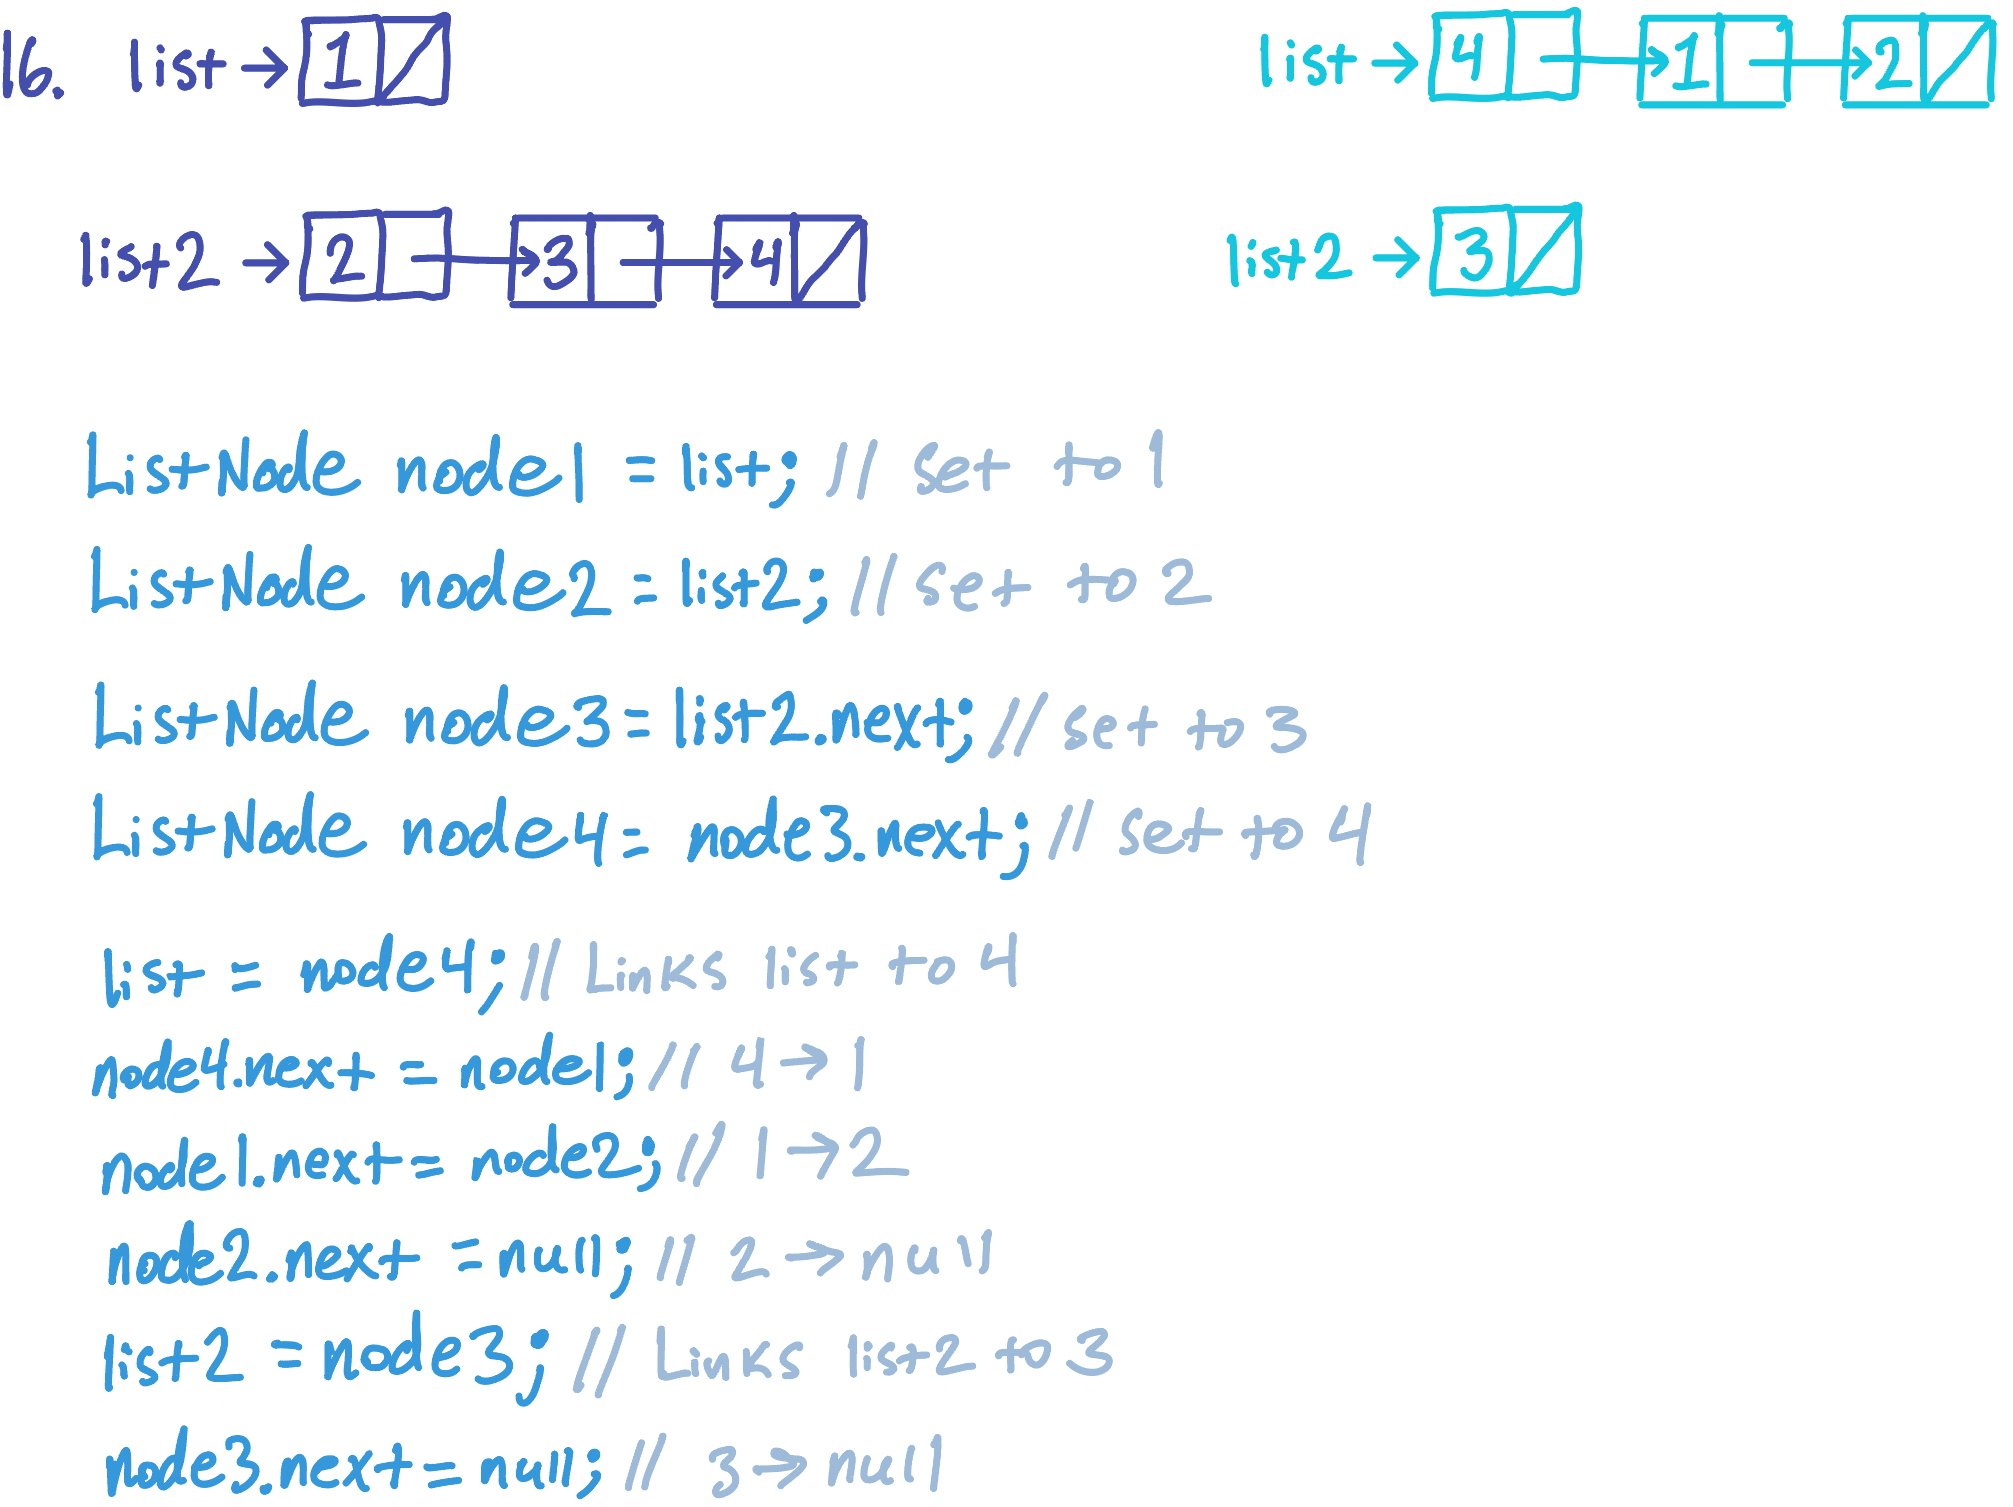 16. list → 1
list → 4 → 1 → 2
list2 → 2 → 3 → 4
list2 → 3
ListNode node1 = list; // set to 1
ListNode node2 = list2; // set to 2
ListNode node3 = list2.next; // set to 3
ListNode node4 = node3.next; // set to 4
list = node4; // Links list to 4
node4.next = node1; // 4 → 1
node1.next = node2; // 1 → 2
node2.next = null; // 2 → null
list2 = node3; // Links list2 to 3
node3.next = null; // 3 → null